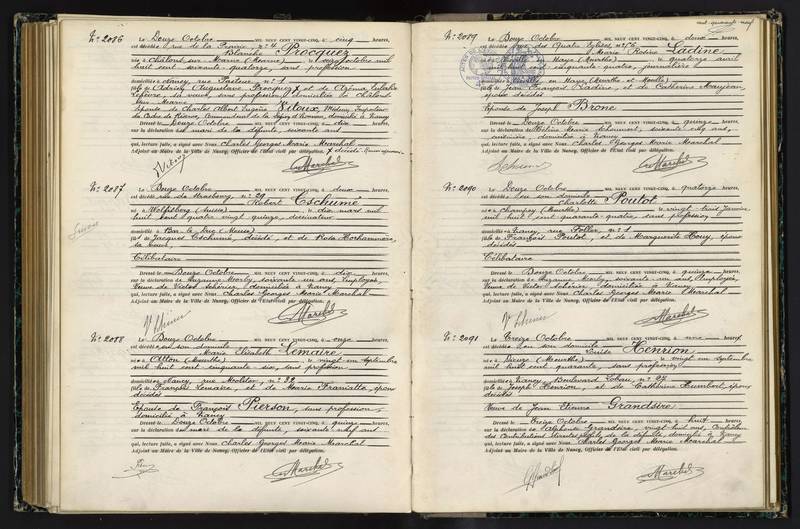 N° 2086 Le Douze Octobre MIL NEUF CENT VINGT-CINQ, à cinq heures,
est décédée rue de la Prairie, n° 4
Blanche Procquez
née à Châlons sur Marne (Marne) le onze octobre mil
huit cent soixante quatorze, sans profession
domiciliée à Nancy, rue Pasteur, n° 1
fille de Adrien Procquez x et de
Lefèvre, sa veuve, sans profession, domiciliée à Châlons
sur Marne
Epouse de Charles Albert Eugène Vitoux,
domicilié à Nancy
Dressé le Douze Octobre MIL NEUF CENT VINGT-CINQ, à dix heures,
sur la déclaration du mari de la défunte, soixante ans
qui, lecture faite, a signé avec Nous Charles Georges Marie Maréchal
Adjoint au Maire de la Ville de Nancy, Officier de l'Etat civil par délégation. x décédé
Vitoux Marechal
N° 2087 Le Douze Octobre MIL NEUF CENT VINGT-CINQ, à deux heures,
est décédé rue de Strasbourg n° 29
Robert Tschumé
né à Wolfisberg (Suisse) le dix mars mil
huit cent quatre vingt quinze, dessinateur
Suisse
domicilié à Bar le Duc (Meuse)
fils de Jacques Tschumé, décédé, et de Rosa
sa veuve
Célibataire
Dressé le Douze Octobre MIL NEUF CENT VINGT-CINQ, à dix heures,
sur la déclaration de Suzanne Morly, soixante un ans, employée,
Veuve de Victor Schérier, domiciliée à Nancy
qui, lecture faite, a signé avec Nous Charles Georges Marie Maréchal
Adjoint au Maire de la Ville de Nancy, Officier de l'Etat civil par délégation.
Marechal
N° 2088 Le Douze Octobre MIL NEUF CENT VINGT-CINQ, à onze heures,
est décédée en son domicile
Marie Elisabeth Lemaire
née à Atton (Meurthe) le vingt un Septembre
mil huit cent cinquante six, sans profession
domiciliée à Nancy, rue Molitor, n° 82
fille de François Lemaire, et de Marie, époux
décédés
Epouse de François Pierson, sans profession,
domicilié à Nancy
Dressé le Douze Octobre MIL NEUF CENT VINGT-CINQ, à quinze heures,
sur la déclaration du mari de la défunte, soixante neuf ans
qui, lecture faite, a signé avec Nous Charles Georges Marie Maréchal
Adjoint au Maire de la Ville de Nancy, Officier de l'Etat civil par délégation.
Marechal
N° 2089 Le Douze Octobre MIL NEUF CENT VINGT-CINQ, à deux heures,
est décédée rue des Quatre Eglises n° 56
Marie Rosine Ladine
née à Haye (Meurthe) le quatorze avril
mil huit cent soixante quatre, journalière
domiciliée à en Haye (Meurthe et Moselle)
fille de Jean François Ladine, et de Catherine Maujean,
époux décédés
Epouse de Joseph Brone
Dressé le Douze Octobre MIL NEUF CENT VINGT-CINQ, à quinze heures,
sur la déclaration de Marie, soixante cinq ans,
domiciliée à Nancy
qui, lecture faite, a signé avec Nous Charles Georges Marie Maréchal
Adjoint au Maire de la Ville de Nancy, Officier de l'Etat civil par délégation.
Marechal
N° 2090 Le Douze Octobre MIL NEUF CENT VINGT-CINQ, à quatorze heures,
est décédée en son domicile
Charlotte Poutot
née à Champey (Meurthe) le vingt huit Janvier
mil huit cent quarante quatre, sans profession
domiciliée à Nancy, rue Foller n° 1
fille de François Poutot, et de Marguerite Houy, époux
décédés
Célibataire
Dressé le Douze Octobre MIL NEUF CENT VINGT-CINQ, à quinze heures,
sur la déclaration de Suzanne Morly, soixante un ans, employée,
Veuve de Victor Schérier, domiciliée à Nancy
qui, lecture faite, a signé avec Nous Charles Georges Marie Maréchal
Adjoint au Maire de la Ville de Nancy, Officier de l'Etat civil par délégation.
Marechal
N° 2091 Le Treize Octobre MIL NEUF CENT VINGT-CINQ, à heures,
est décédée en son domicile
Louise Henrion
née à Dieuze (Meurthe) le vingt un Septembre
mil huit cent quarante, sans profession
domiciliée à Nancy, Boulevard Lobau, n° 27
fille de Joseph Henrion, et de Catherine Humbert, époux
décédés
Veuve de Jean Etienne Grandsire
Dressé le Treize Octobre MIL NEUF CENT VINGT-CINQ, à huit heures,
sur la déclaration de Stéphane Grandsire, vingt huit ans, Contrôleur
des Contributions directes, de la défunte, domicilié à Nancy
qui, lecture faite, a signé avec Nous Charles Georges Marie Maréchal
Adjoint au Maire de la Ville de Nancy, Officier de l'Etat civil par délégation.
Marechal